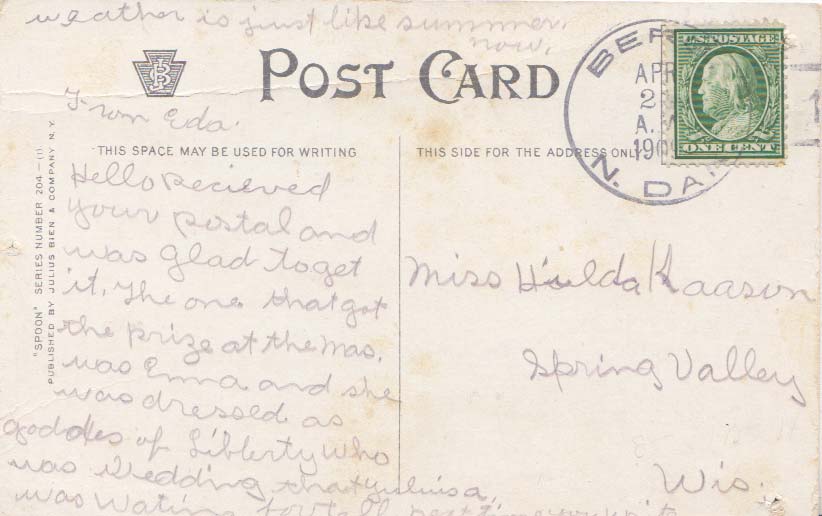 weather is just like summer
now.
POST CARD
From Eda.
THIS SPACE MAY BE USED FOR WRITING
Hello recieved
your postal and
was glad to get
it. The one that got
the prize at the mas.
was Emma and she
was dressed as
goddes of Libberty who
was Wedding that
was Wating for tell next time you
"SPOON" SERIES NUMBER 204 – (1)
PUBLISHED BY JULIUS BIEN & COMPANY N.Y.
THIS SIDE FOR THE ADDRESS ONLY
Miss Hulda Kaason
Spring Valley
Wis.
BER
APR
2
A.M
190
N. DAK
U.S. POSTAGE
ONE CENT
1